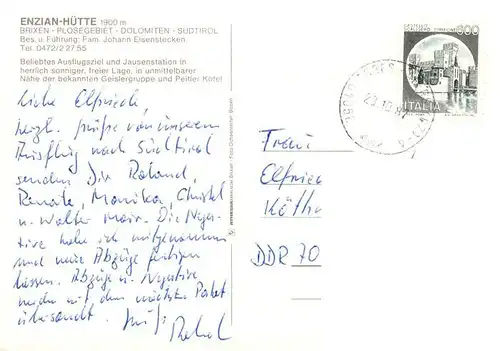 ENZIAN-HÜTTE 1900 m
BRIXEN - PLOSEGEBIET - DOLOMITEN - SÜDTIROL
Bes. u. Führung: Fam. Johann Eisenstecken
Tel. 0472/2 27 55
Beliebtes Ausflugsziel und Jausenstation in
herrlich sonniger, freier Lage, in unmittelbarer
Nähe der bekannten Geislergruppe und Peitler Kofel
Liebe Elfriede,
herzl. Grüße von unserem
Ausflug nach Südtirol
senden Dir Roland,
Renate, Monika, Christl
u. Walter Mair. Die Nega-
tive habe ich mitgenommen
und neue Abzüge fertigen
lassen. Abzüge u. Negative
werden mit dem nächsten Paket
übersandt.
ITALIA
Frau
Elfriede
DDR 70